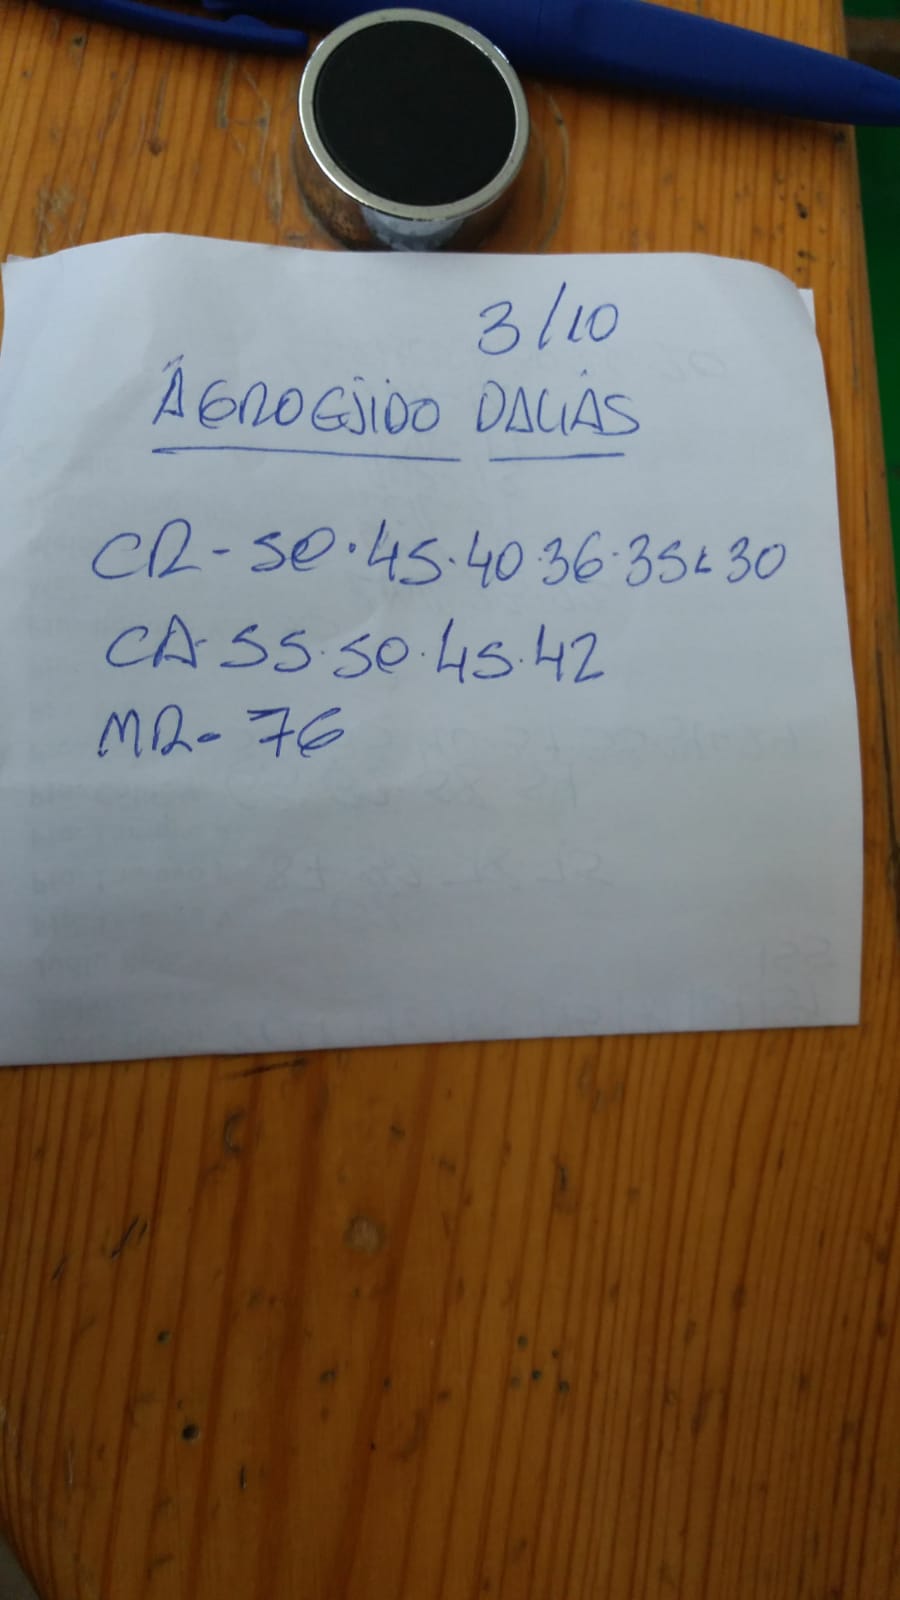 3/10
AGROEJIDO DALIAS
CR - 50.45.40.36.35.30
CA 55.50.45.42
MR - 76